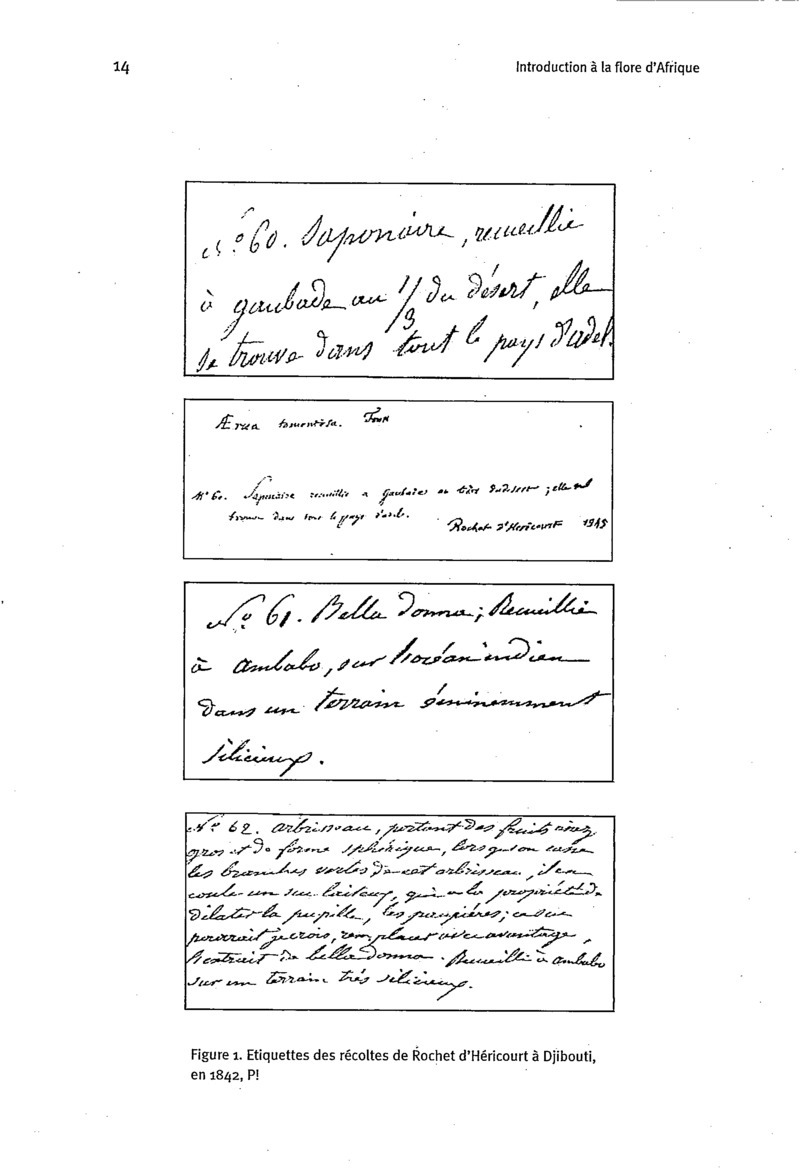 14
Introduction à la flore d'Afrique
N.º 60. Saponaire, recueillie
à gaubade au 1/3 du désert, elle
se trouve dans tout le pays d'adel.
Ærua tomentosa. Forsk
Nº 60. Saponaire recueillie a Gaubade au tiers du desert ; elle se
trouve dans tout le pays d'adel.
Rochet d'Hericourt 1845
Nº 61. Bella donna; Recueillie
à ambabo, sur l'océan indien
dans un terrain éminemment
silicieux.
Nº 62. arbrisseau, portant des fruits assez
gros et de forme sphérique, lorsqu'on casse
les branches vertes de cet arbrisseau, il en
coule un suc laiteux, qui a la propriété de
dilater la pupille, les paupières; ce suc
pourrait je crois, remplacer avec avantage,
l'extrait de bella donna. Recueilli à ambabo
sur un terrain trés silicieux.
Figure 1. Etiquettes des récoltes de Rochet d'Héricourt à Djibouti,
en 1842, P!